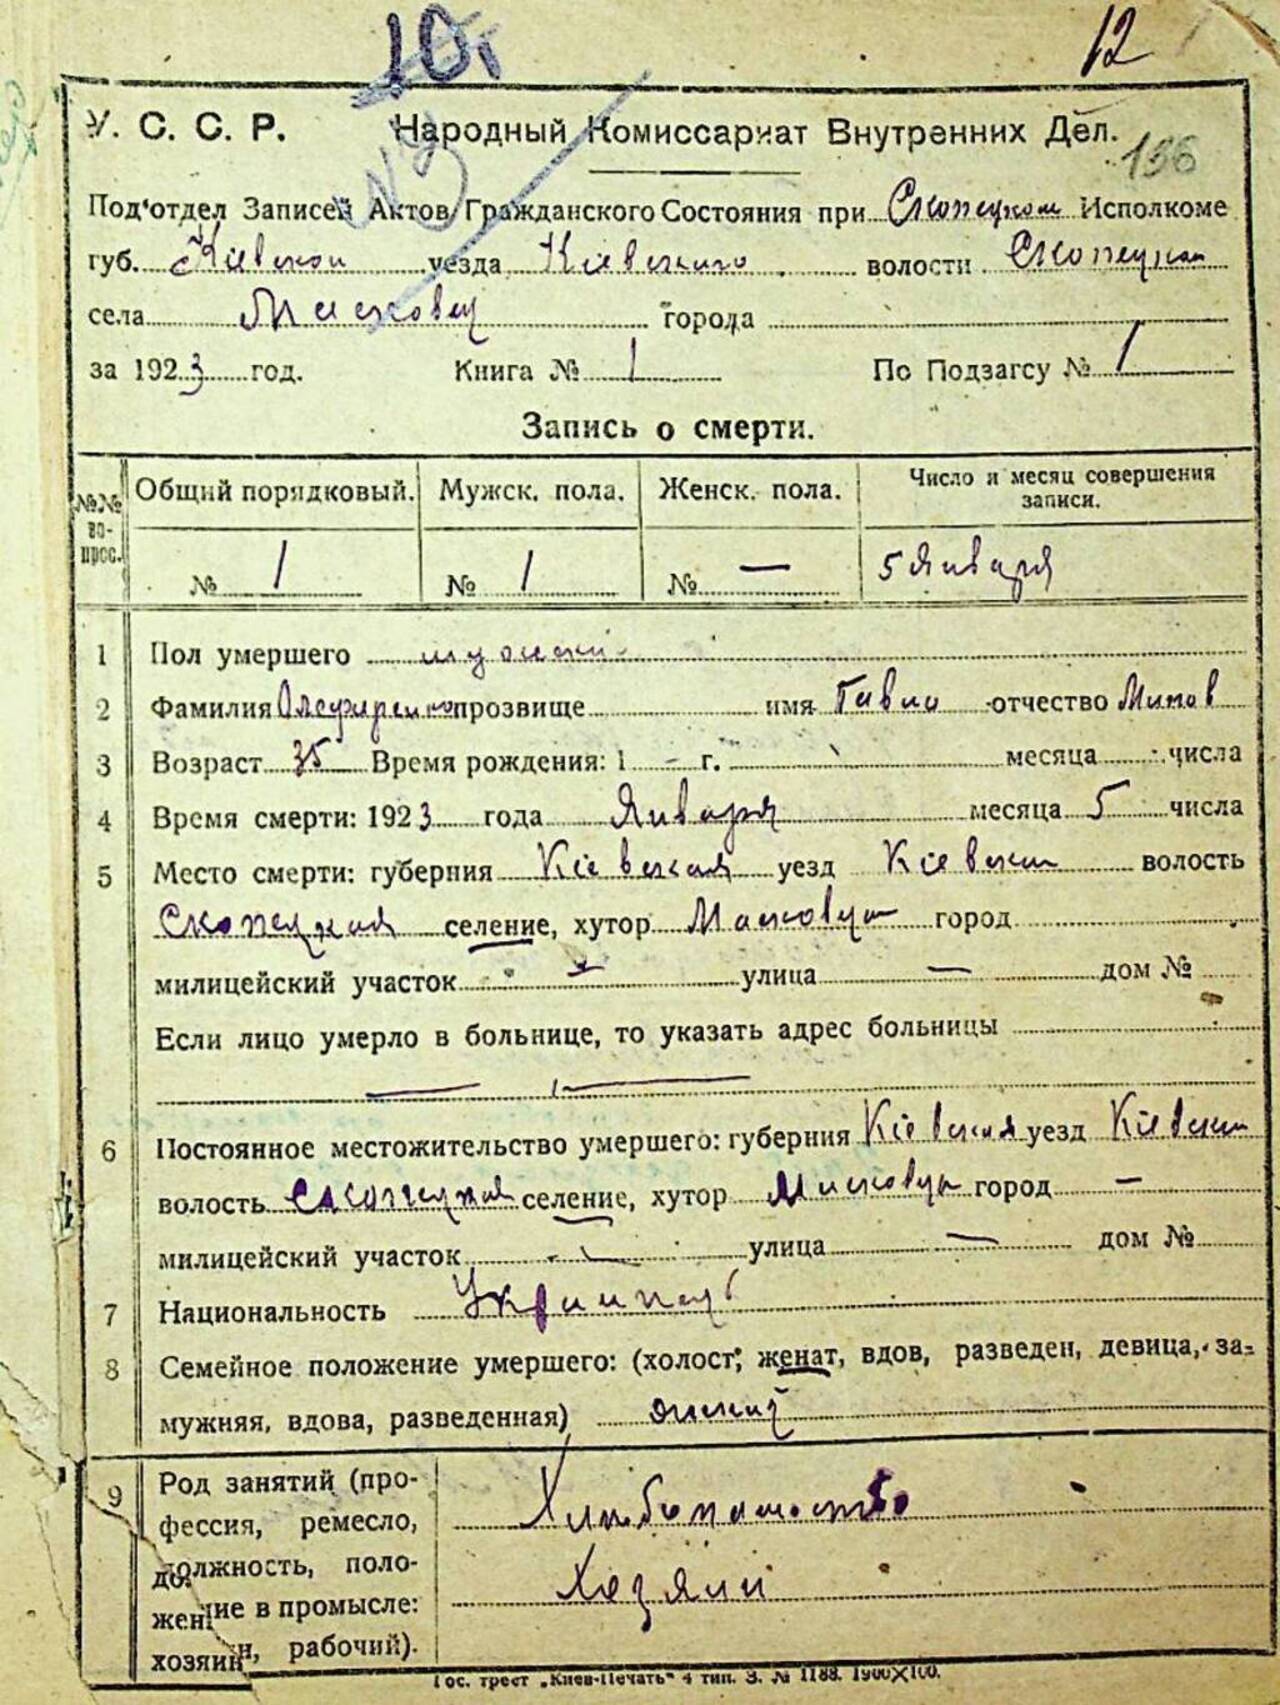 10.
12
№3
У. С. С. Р. Народный Комиссариат Внутренних Дел.
156
Под'отдел Записей Актов Гражданского Состояния при Скопецком Исполкоме
губ. Кіевской уезда Кіевскиго волости Скопецкой
села города
за 1923 год. Книга № 1 По Подзагсу № 1
Запись о смерти.
№№ во-прос. Общий порядковый. Мужск. пола. Женск. пола. Число и месяц совершения
записи.
№ 1 № 1 № — 5 Января
1 Пол умершего мужский
2 Фамилия Олефиренко прозвище имя Павло отчество
3 Возраст 35 Время рождения: 1 - г. месяца числа
4 Время смерти: 1923 года Января месяца 5 числа
5 Место смерти: губерния Кіевская уезд Кіевский волость
Скопецкая селение, хутор город
милицейский участок — улица — дом №
Если лицо умерло в больнице, то указать адрес больницы
6 Постоянное местожительство умершего: губерния Кіевская уезд Кіевский
волость Скопецкая селение, хутор город —
милицейский участок — улица — дом №
7 Национальность
8 Семейное положение умершего: (холост, женат, вдов, разведен, девица, за-
мужняя, вдова, разведенная)
9 Род занятий (про-
фессия, ремесло,
должность, поло-
жение в промысле:
хозяин, рабочий).
Хлибопашество
Хозяин
Гос. трест „Киев-Печать“ 4 тип. З. № 1188. 1900×100.